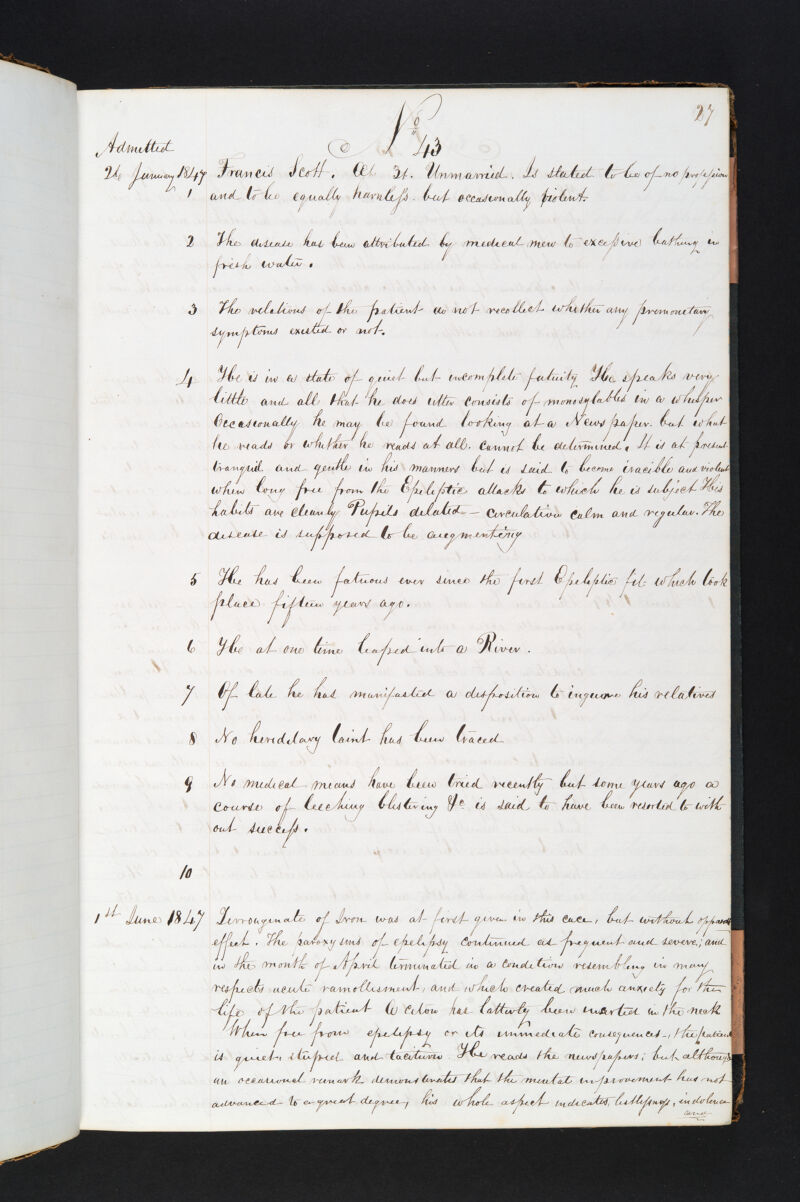 27
No
43
Admitted
January 1847 Francis Scott. Æt 34. Unmarried. Is stated to be of no profession
1 and to be equally harmless but occasionally violent.
2 The disease has been attributed by medical men to excessive bathing in
fresh water.
3 The relations of the patient do not recollect whether any premonetary
symptoms existed or not.
4 He is in a state of quiet but incomplete fatuity He speaks very
little and all that he does utter consists of monosylables in a whisper
Occasionally he may be found looking at a News paper but what
he reads or whether he reads at all cannot be determined. It is at present
tranquil and gentle in his manners but is said to become iracible and violent
when long free from the Epileptic attacks to which he is subject His
habits are cleanly Pupils dilated – circulation calm and regular. The
disease is supposed to be augmenting
5 He has been fatuous ever since the first Epileptic fit which took
place fifteen years ago.
6 He at one time leaped into a River.
7 Of late he has manifested a disposition to his relatives
8 No hereditary taint has been traced
9 No medical means have been tried recently but some years ago a
course of leeching blistering &c is said to have been resorted to with
out success.
10
1st June 1847 of Iron was at first given in this case, but without
effect. The paroxysms of epelipsy continued as frequent and severe; and
in the month of April terminated in a condition resembling in many
respects acute ramollisment, and which created much anxiety for the
life of the patient A ceton has latterly been inserted in the neck
When free from epelipsy or its immediate consequences –, the patient
is quiet, stupid and taciturn He reads the newspapers; but although
an occasional remark demonstrates that the mental improvement has not
advanced to a great degree, his whole aspect indicates listlessness, indolence
and